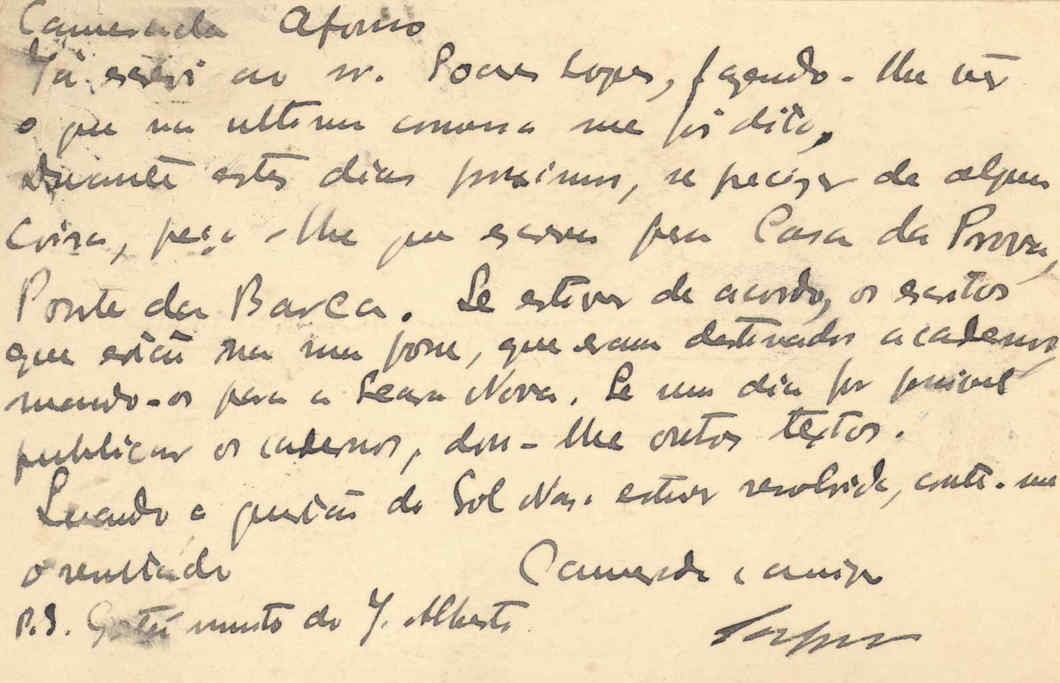 Camarada Afonso
Já escrevi ao sr. Soares Lopes, fazendo-lhe ver
o que na ultima conversa me foi dito,
Durante estes dias proximos, se precisar de alguma
coisa, peço-lhe que escreva para Casa da Prova,
Ponte da Barca. Se estiver de acordo, os escritos
que estão na sua posse, que eram destinados a cadernos,
mando-os para a Seara Nova. Se um dia for possivel
publicar os cadernos, dou-lhe outros textos.
Quando a questão do Sol Nas. estiver resolvida, conte-me
o resultado
Camarada e amigo
P.S. Gostei muito do J. Alberto